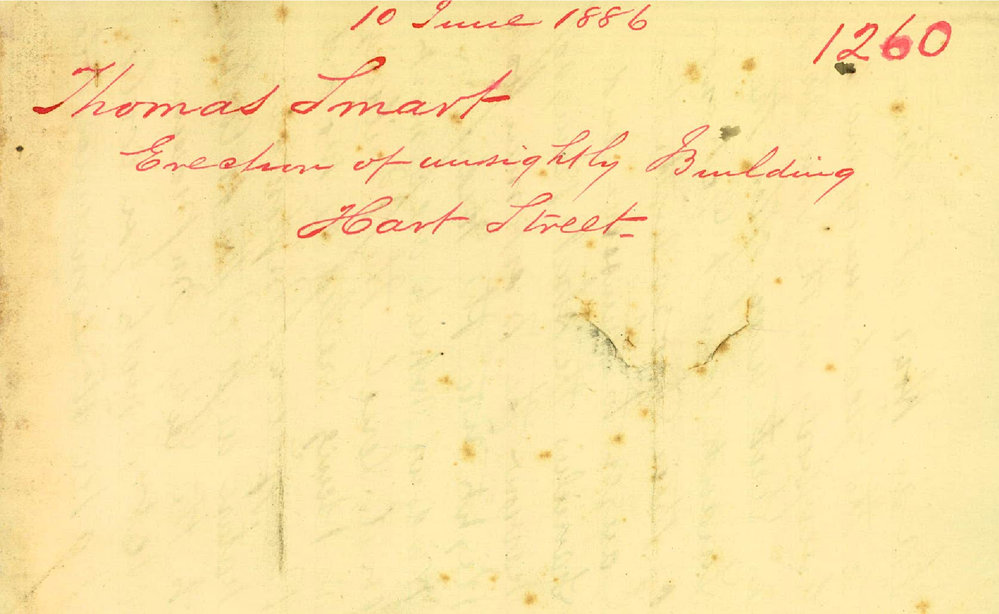 10 June 1886
1260
Thomas Smart
Erection of unsightly Building
Hart Street.